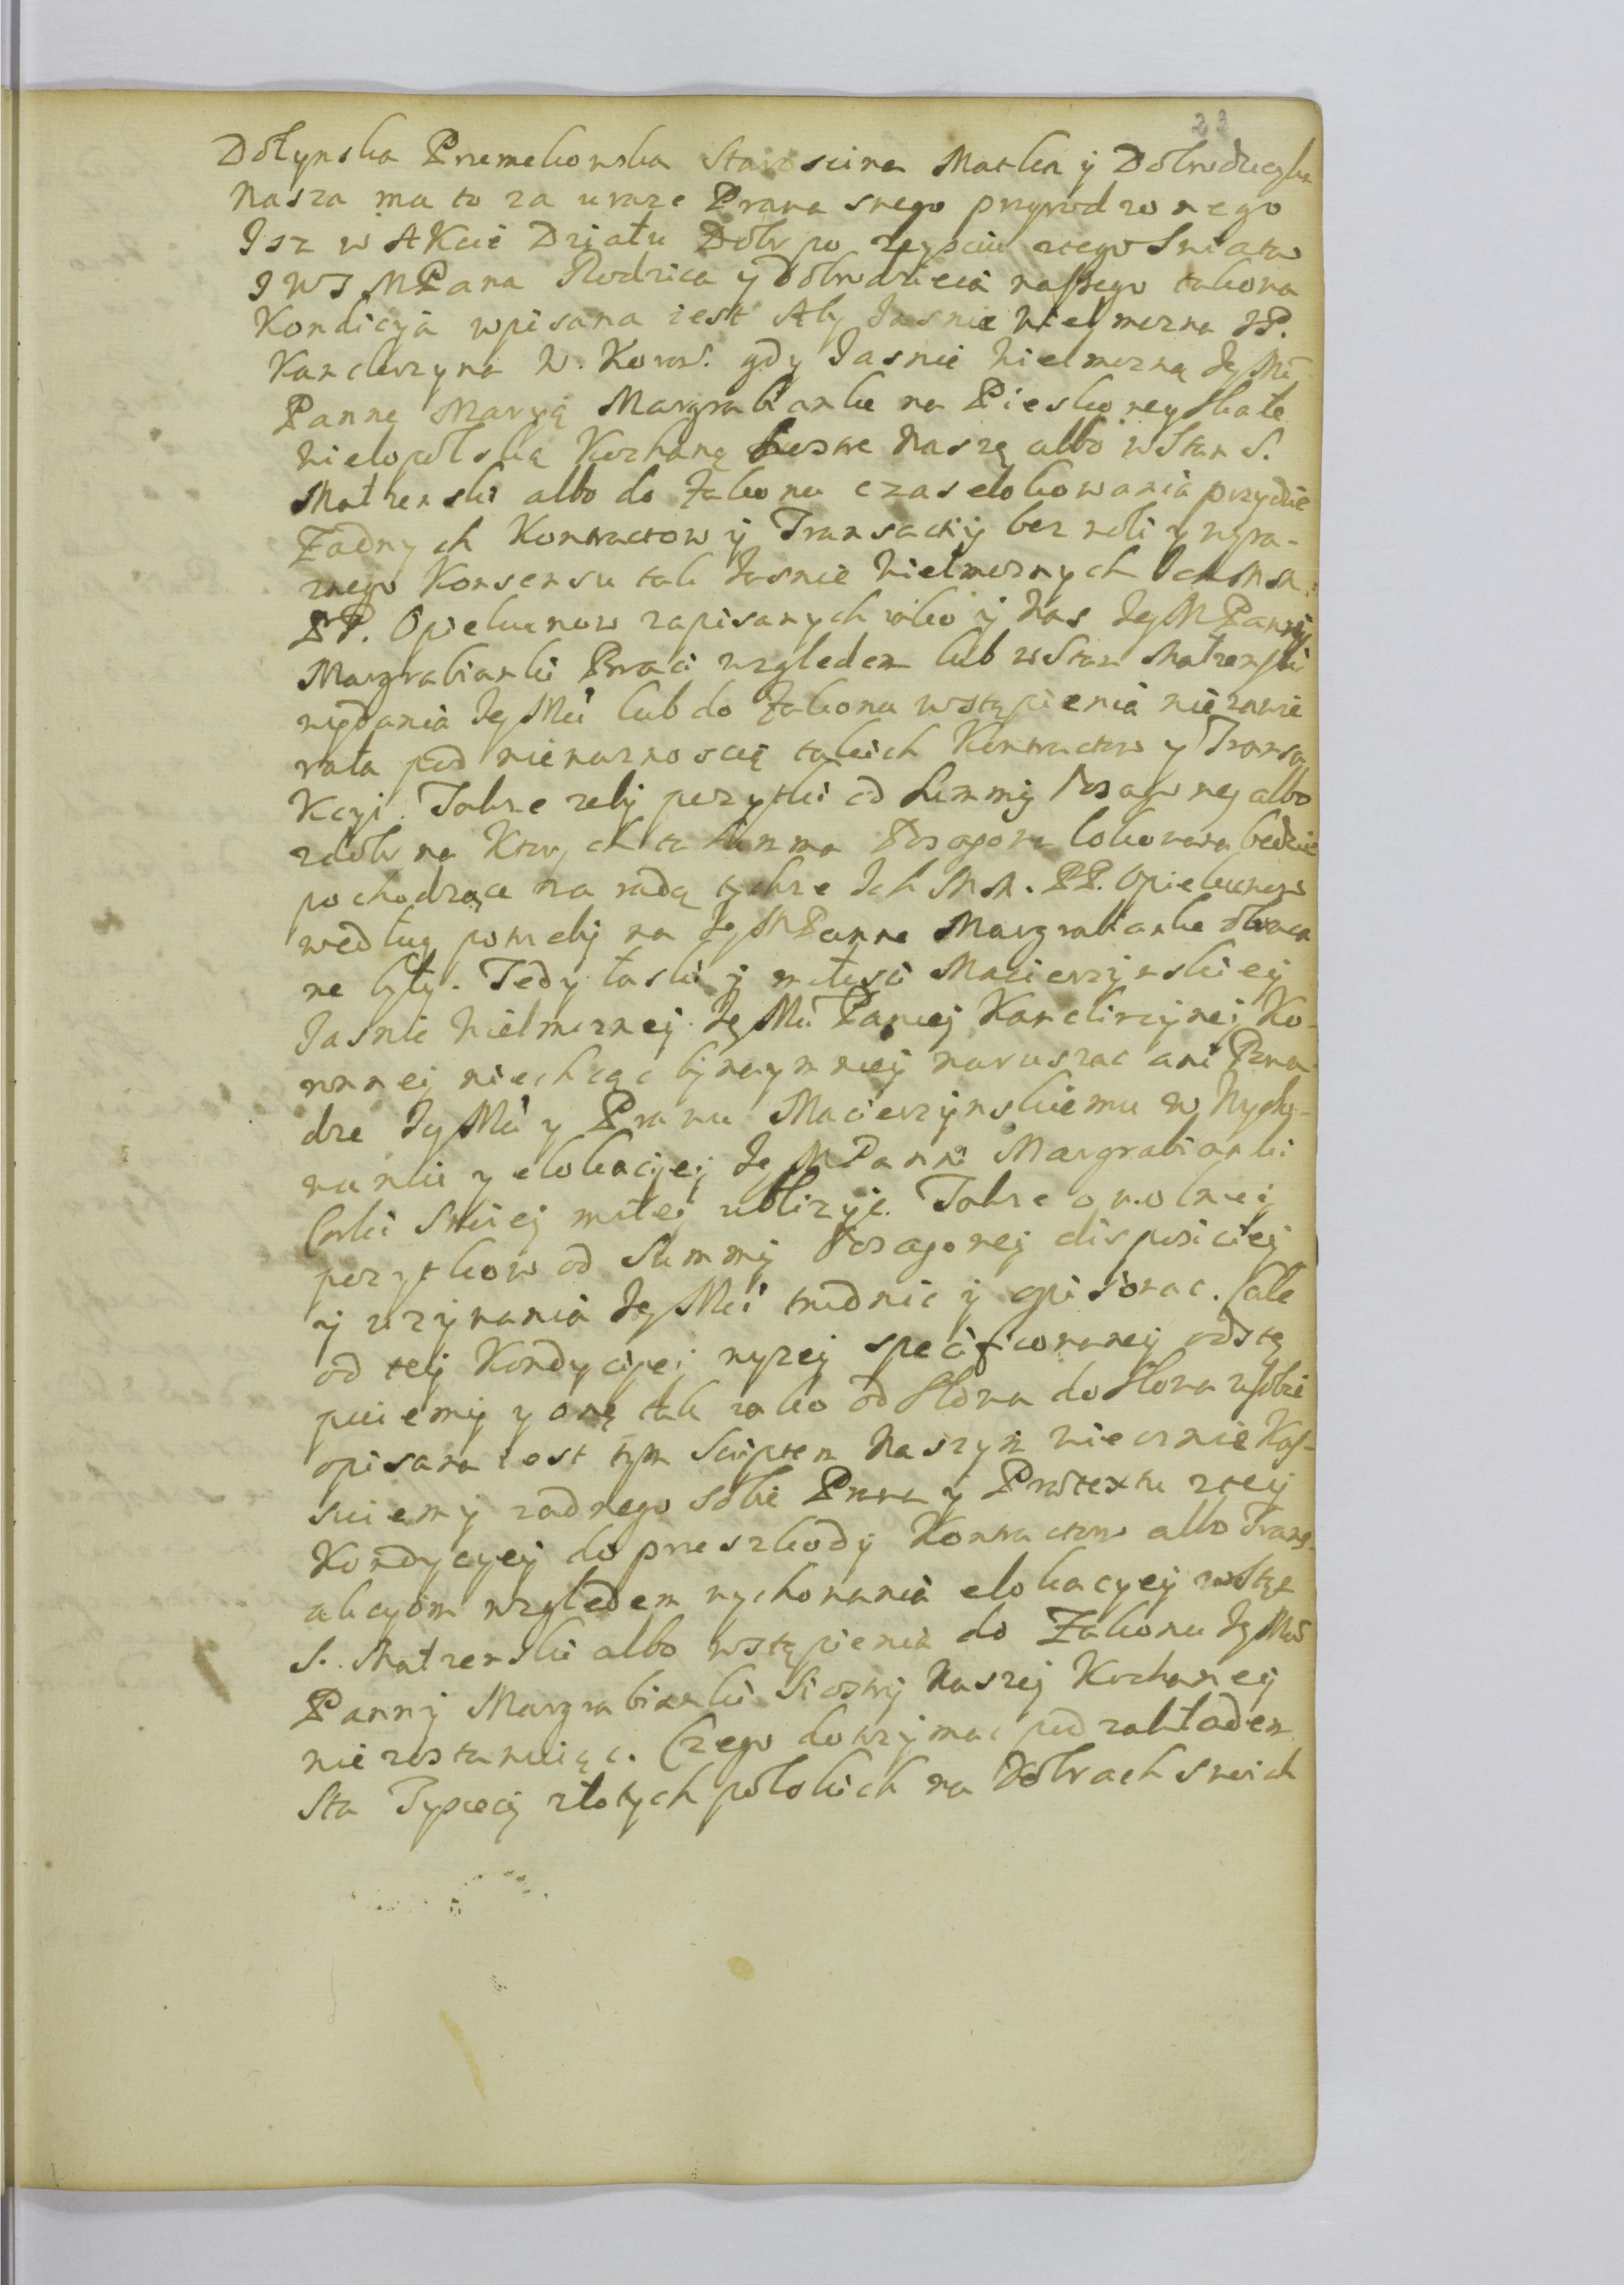 23
Dołynska Przemekowska Staroscina Matka y Dobrodzieyka
Nasza ma to za uraze Prawa swego przyrodzonego
Isz w AKcie Działu Dobr po zeysciu ztego Swiata
J W J MPana Rodzica y Dobrodzieia naszego takowa
Kondicyia wpisana iest Aby Jasnie Wielmozna JP.
Kanclerzyna W. Koron. gdy Jasnie Wielmozną Jey Mć
Pannę Maryą Margrabianke na Pieskowey Skale
Wielopolską Kochaną Siostre Naszę albo w Stan S.
Małzenski albo do Zakonu czas elokowania przydzie
Zadnych Kontractow y Transactiy bez woli y wyra-
znego Konsensu tak Jasnie Wielmoznych Ich M M.
PP. Opiekunow zapisanych iako y Nas Jey M Panny
Margrabianki Braci wzgledem lub w Stan Małzenski
wydania Jey Mci lub do Zakonu wstąpienia nie zawie
rała pod niewaznoscią takich Kontractow y Transa
Kcyi. Takze zeby pozytki od Summy Posagowey albo
zdobr na Ktorych ta Summa Posagowa lokowana bedzie
pochodzące za radą tychze Ich M M. PP. Opiekunow
według potrzeby na Jey MPanne Margrabianke obraca
ne były. Tedy łaski y miłosci Macierzynskiey
Jasnie Wielmozney Jey Mci Paniey Kanclerzynei Ko-
ronney niechcąc bynaymniey naruszac ani Powa-
dze Jey Mci y Prawu Macierzynskiemu w Wycho-
waniu y elokacyey Jey MPanni Margrabianki
Corki Swoiey miłey ubliżyć. Takze o wolney
pozytkow od Summy Posagowey disposiciey
y uzywania Jey Mci trudnic y opisowac. Cale
od tey Kondycyiei wyzey specificowaney odstę
puiemy y onę tak iako od Słowa do Słowa w sobie
opisana iest tym Scriptem Naszym wiecznie Kas-
suiemy zadnego sobie Prawa y Praetextu ztey
Kondycyey do przeszkody Kontractow albo Trans-
akcyom wzgledem wychowania elokacyey w Stan
S. Małzenski albo wstąpienia do Zakonu Jey Mci
Panny Margrabianki Siostry Naszej Kochaney
nie zostawuiąc. Czego dotrzymac pod zakładem
Sta Tysięcy złotych polskich na Dobrach swoich